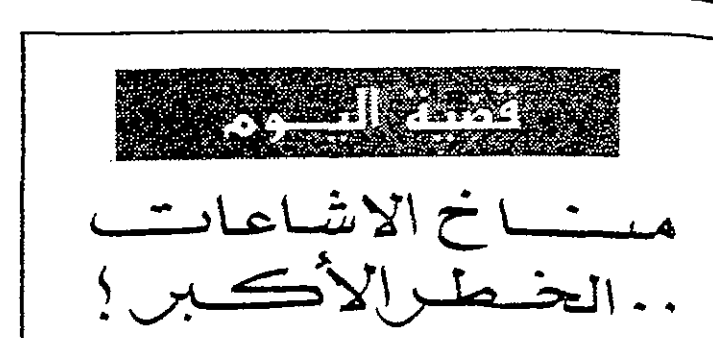 قضية اليوم
مناخ الاشاعات
.. الخطر الأكبر !